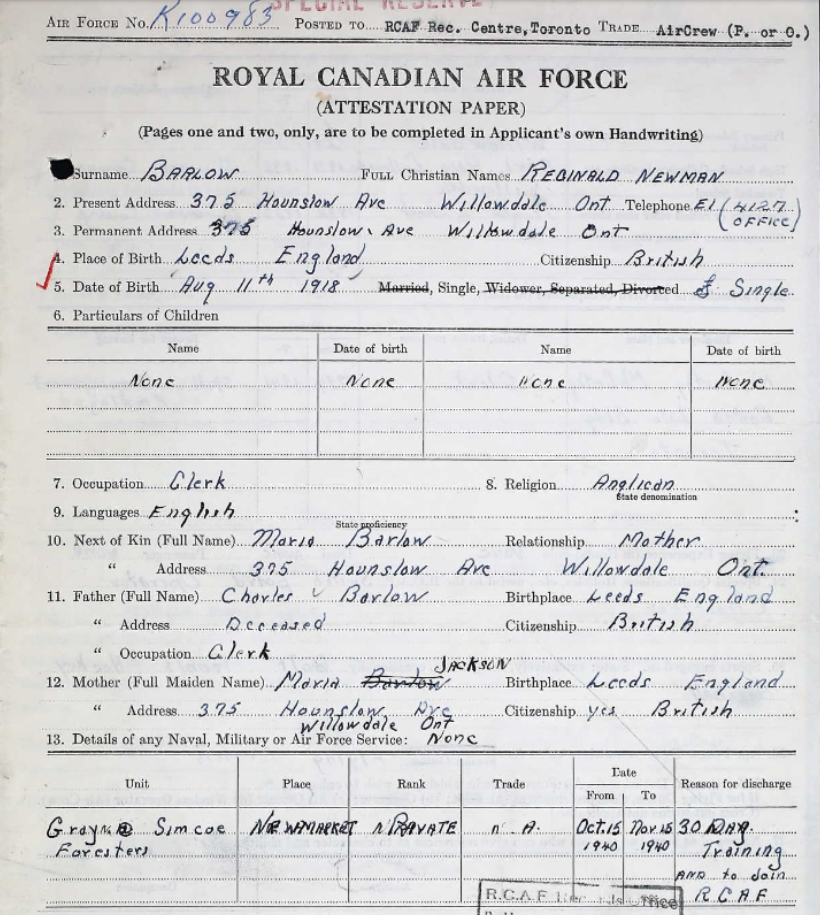 SPECIAL RESERVE
AIR FORCE No. R100983 POSTED TO RCAF Rec. Centre, Toronto TRADE AirCrew (P. or O.)
ROYAL CANADIAN AIR FORCE
(ATTESTATION PAPER)
(Pages one and two, only, are to be completed in Applicant's own Handwriting)
Surname BARLOW FULL Christian Names REGINALD NEWMAN
2. Present Address 375 Hounslow Ave Willowdale Ont Telephone El (4127
OFFICE)
3. Permanent Address 375 Hounslow Ave Willowdale Ont
4. Place of Birth Leeds England Citizenship British
5. Date of Birth Aug 11th 1918 Married, Single, Widower, Separated, Divorced Single
6. Particulars of Children
Name Date of birth Name Date of birth
None None None None
7. Occupation Clerk 8. Religion Anglican
State denomination
9. Languages English
State proficiency
10. Next of Kin (Full Name) Maria Barlow Relationship Mother
" Address 375 Hounslow Ave Willowdale Ont.
11. Father (Full Name) Charles Barlow Birthplace Leeds England
" Address Deceased Citizenship British
" Occupation Clerk
JACKSON
12. Mother (Full Maiden Name) Maria Barlow Birthplace Leeds England
" Address 375 Hounslow Ave Citizenship yes British
Willowdale Ont
13. Details of any Naval, Military or Air Force Service: None
Unit Place Rank Trade Date Reason for discharge
From To
Simcoe NEWMARKET PRIVATE n. A. Oct. 15 Nov. 15 30 DAY
Foresters 1940 1940 Training
AND to join
RCAF
R.C.A.F. Office